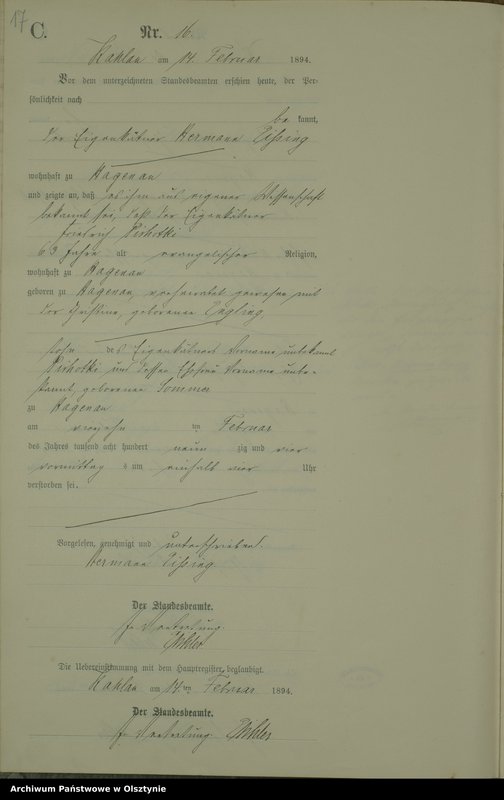 17
C.
Nr. 16.
Kahlau am 14. Februar 1894.
Vor dem unterzeichneten Standesbeamten erschien heute, der Per-
sönlichkeit nach
be kannt,
der Eigenkätner Hermann
wohnhaft zu Hagenau
und zeigte an, daß es ihm aus eigener Wissenschaft
bekannt sei, daß der Eigenkätner
Friedrich
63 Jahre alt evangelischer Religion,
wohnhaft zu Hagenau
geboren zu Hagenau, verheiratet gewesen mit
der Justine, geborenen Engling
Sohn des Eigenkätners Vorname unbekannt
und dessen Ehefrau Vorname unbe-
kannt, geborenen Sommer
zu Hagenau
am vierzehn im Februar
des Jahres tausend acht hundert neun zig und vier
vormittag s um einhalb vier Uhr
verstorben sei.
Vorgelesen, genehmigt und unterschrieben.
Hermann
Der Standesbeamte.
In Vertretung.
Die Uebereinstimmung mit dem Hauptregister beglaubigt.
Kahlau am 14.ten Februar 1894.
Der Standesbeamte.
In Vertretung
Archiwum Państwowe w Olsztynie